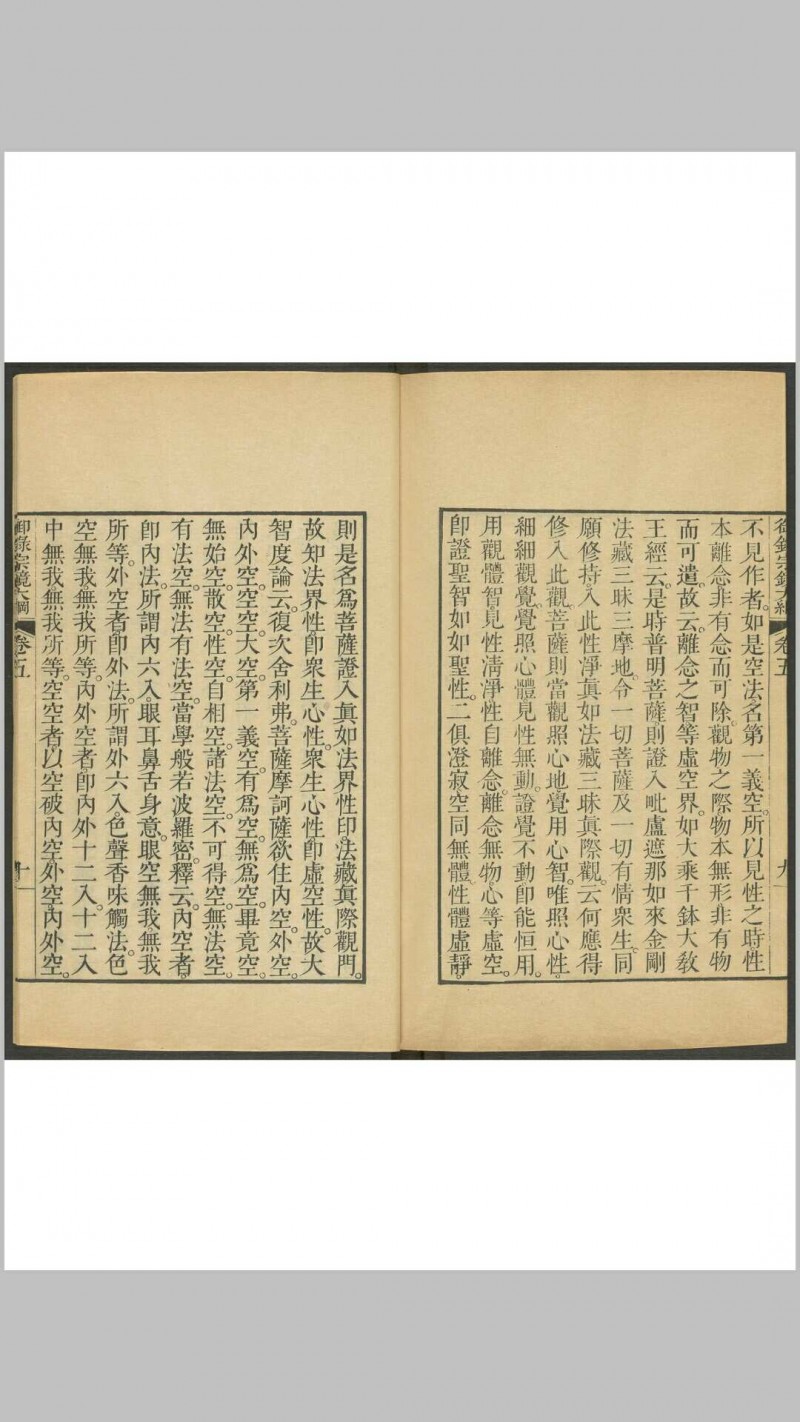 不見作者。如是空法名第一義空。所以見性之時性
本離念。非有念而可除。觀物之際物本無形。非有物
而可遣。故云。離念之智等虛空界。如大乘千鉢大敎
王經云。是時普明菩薩。則證入毗盧遮那如來金剛
法藏三昧三摩地。令一切菩薩及一切有情衆生。同
願修持。入此性淨眞如法藏三昧眞際觀。云何應得
修入此觀。菩薩則當觀照心地。覺用心智。唯照心性。
細細觀覺。覺照心體。見性無動。證覺不動。卽能恒用。
用觀體智。見性淸淨。性自離念。離念無物。心等虛空。
卽證聖智。如如聖性。二俱澄寂。空同無體。性體虛靜。
卷五
九
則是名爲菩薩證入眞如法界性印。法藏眞際觀門。
故知法界性卽衆生心性。衆生心性卽虛空性。故大
智度論云。復次舍利弗。菩薩摩訶薩欲住內空。外空。
內外空。空空。大空。第一義空。有爲空。無爲空。畢竟空。
無始空。散空。性空。自相空。諸法空。不可得空。無法空。
有法空。無法有法空。當學般若波羅密。釋云。內空者。
卽內法。所謂內六入。眼耳鼻舌身意。眼空無我無我
所等。外空者。卽外法。所謂外六入。色聲香味觸法。色
空無我無我所等。內外空者。卽內外十二入。十二入
中無我無我所等。空空者。以空破內空外空內外空。
御錄宗鏡大綱
卷五
十